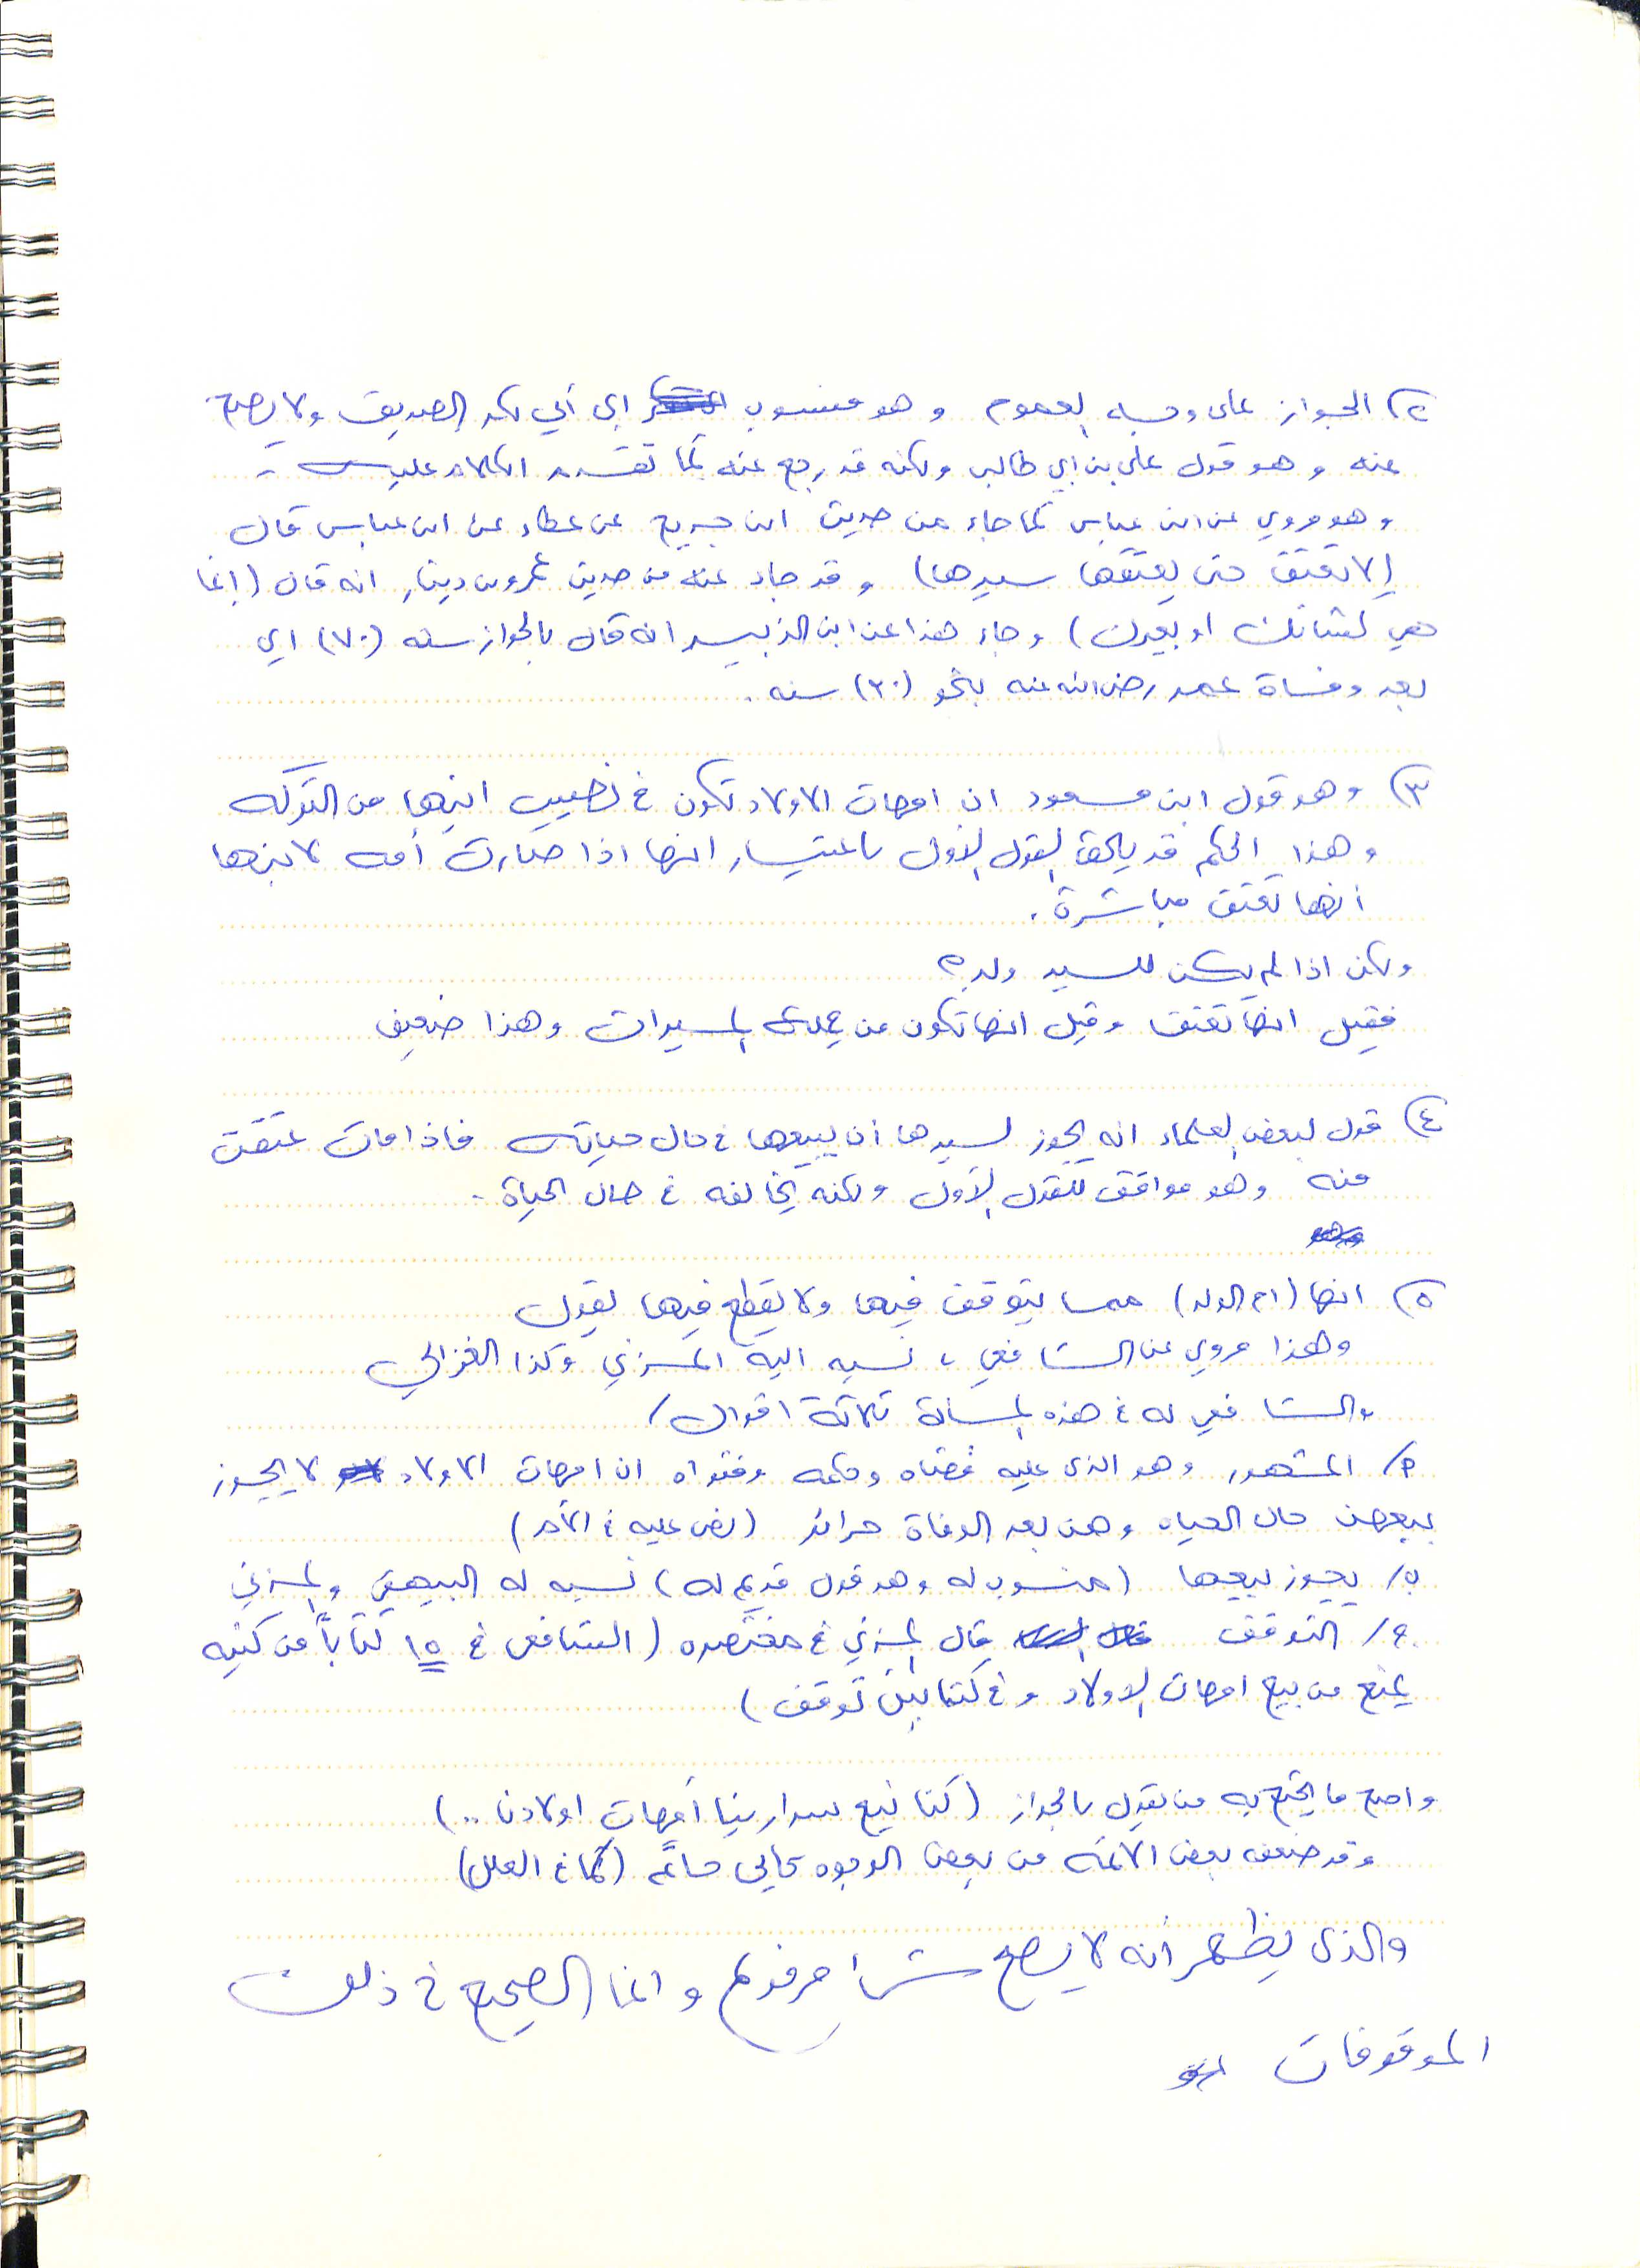 ٢) الجواز على وجه العموم وهو منسوب إلى أبي بكر الصديق ولا يصح
عنه وهو قول علي بن ابي طالب ولكنه قد رجع عنه كما تقدم الكلام عليه -
وهو مروي عن ابن عباس كما جاء من حديث ابن جريج عن عطاء عن ابن عباس قال
(لا تعتق حتى يعتقها سيدها) وقد جاء عنه من حديث عمرو بن دينار انه قال (إنما
هي كشاتك او بعيرك) وجاء هذا عن ابن الزبير انه قال بالجواز سنه (٧٠) اي
بعد وفاة عمر رضي الله عنه بنحو (٣٠) سنه .
٣) وهو قول ابن مسعود ان امهات الاولاد تكون في نصيب ابنها من التركه
وهذا الحكم قد يلحق القول الأول باعتبار انها اذا صارت أمه لابنها
أنها تعتق مباشرة .
ولكن اذا لم يكن للسيد ولد ؟
فقيل انها تعتق وقيل انها تكون من جملة الميراث وهذا ضعيف
٤) قول لبعض العلماء انه يجوز لسيدها أن يبيعها في حال حياته فاذا مات عتقت
منه وهو موافق للقول الأول ولكنه يخالفه في حال الحياة .
٥) انها (ام الولد) مما يتوقف فيها ولا يقطع فيها بقول
وهذا مروي عن الشافعي ، نسبه اليه المزني وكذا الغزالي
والشافعي له في هذه المسألة ثلاثة اقوال /
أ/ المشهور وهو الذي عليه قضاه وحكمه وفتواه ان امهات الاولاد لا يجوز
بيعهن حال الحياه وهن بعد الوفاة حرائر (نص عليه في الأم)
ب/ يجوز بيعها (منسوب له وهو قول قديم له) نسبه له البيهقي والمزني
ج/ التوقف قال المزني في مختصره (الشافعي في ١٥ كتاباً من كتبه
يمنع من بيع امهات الاولاد وفي كتابين توقف)
واصح ما يحتج به من يقول بالجواز (كنا نبيع سرارينا أمهات اولادنا ..)
وقد ضعفه بعض الائمه من بعض الوجوه كأبي حاتم (كما في العلل)
والذي يظهر أنه لا يصح شيئا مرفوعا وانما الصحيح في ذلك
الموقوفات